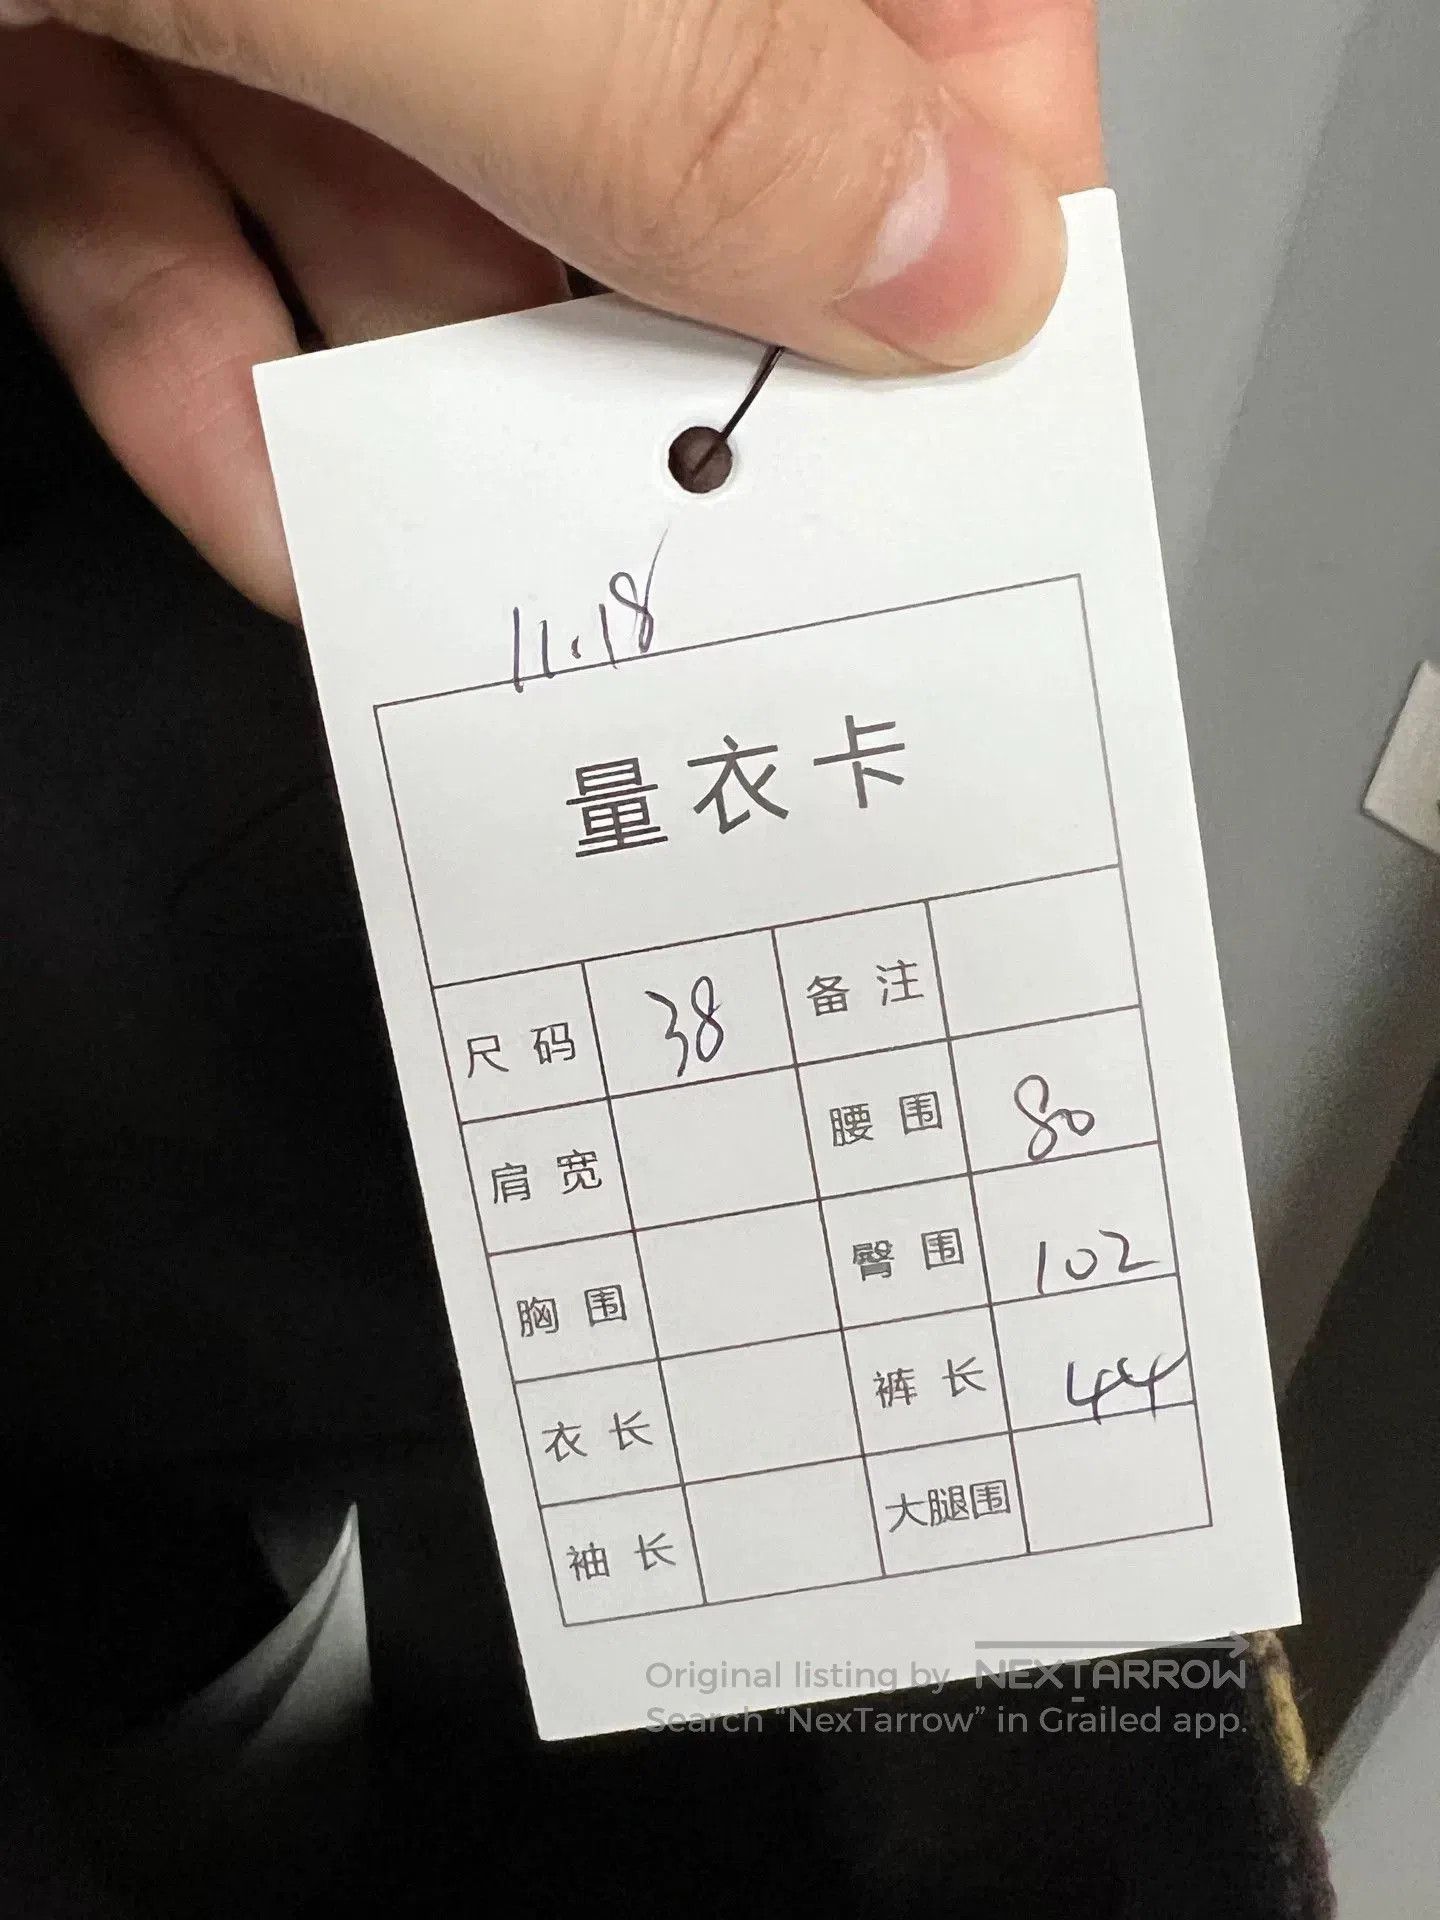 11.18
量衣卡
尺码 38 备注
肩宽 腰围 80
胸围 臀围 102
衣长 裤长 44
袖长 大腿围
Original listing by NEXTARROW
Search “NexTarrow” in Grailed app.